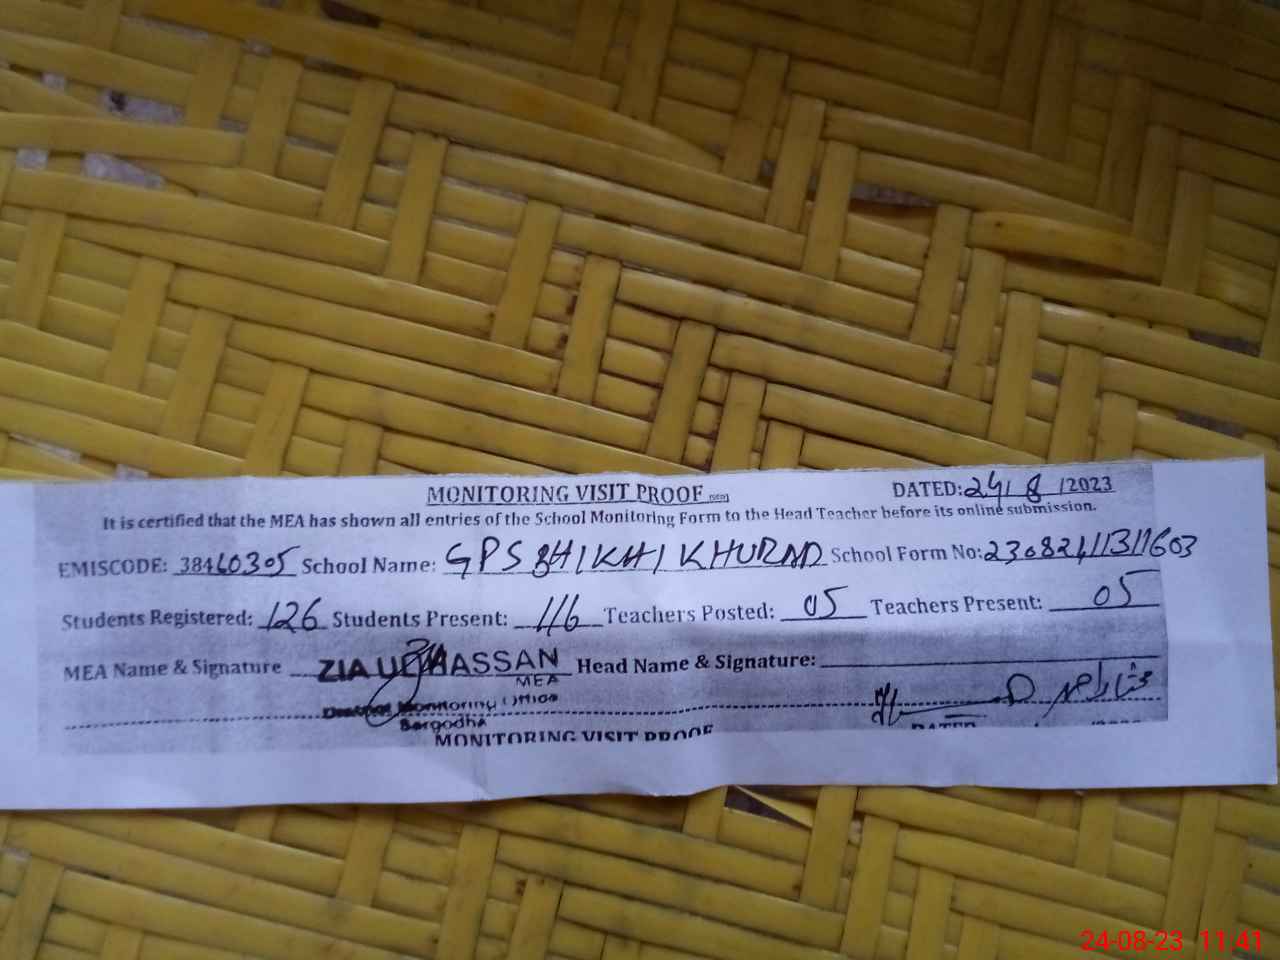 MONITORING VISIT PROOF
DATED: 24/8/2023
It is certified that the MEA has shown all entries of the School Monitoring Form to the Head Teacher before its online submission.
EMISCODE: 38460305 School Name: GPS BHIKHI KHURAD School Form No: 230824113117603
Students Registered: 126 Students Present: 116 Teachers Posted: 05 Teachers Present: 05
MEA Name & Signature ZIA UL HASSAN Head Name & Signature:
MEA
District Monitoring Office
Sargodha
MONITORING VISIT PROOF DATED
24-08-23 11:41